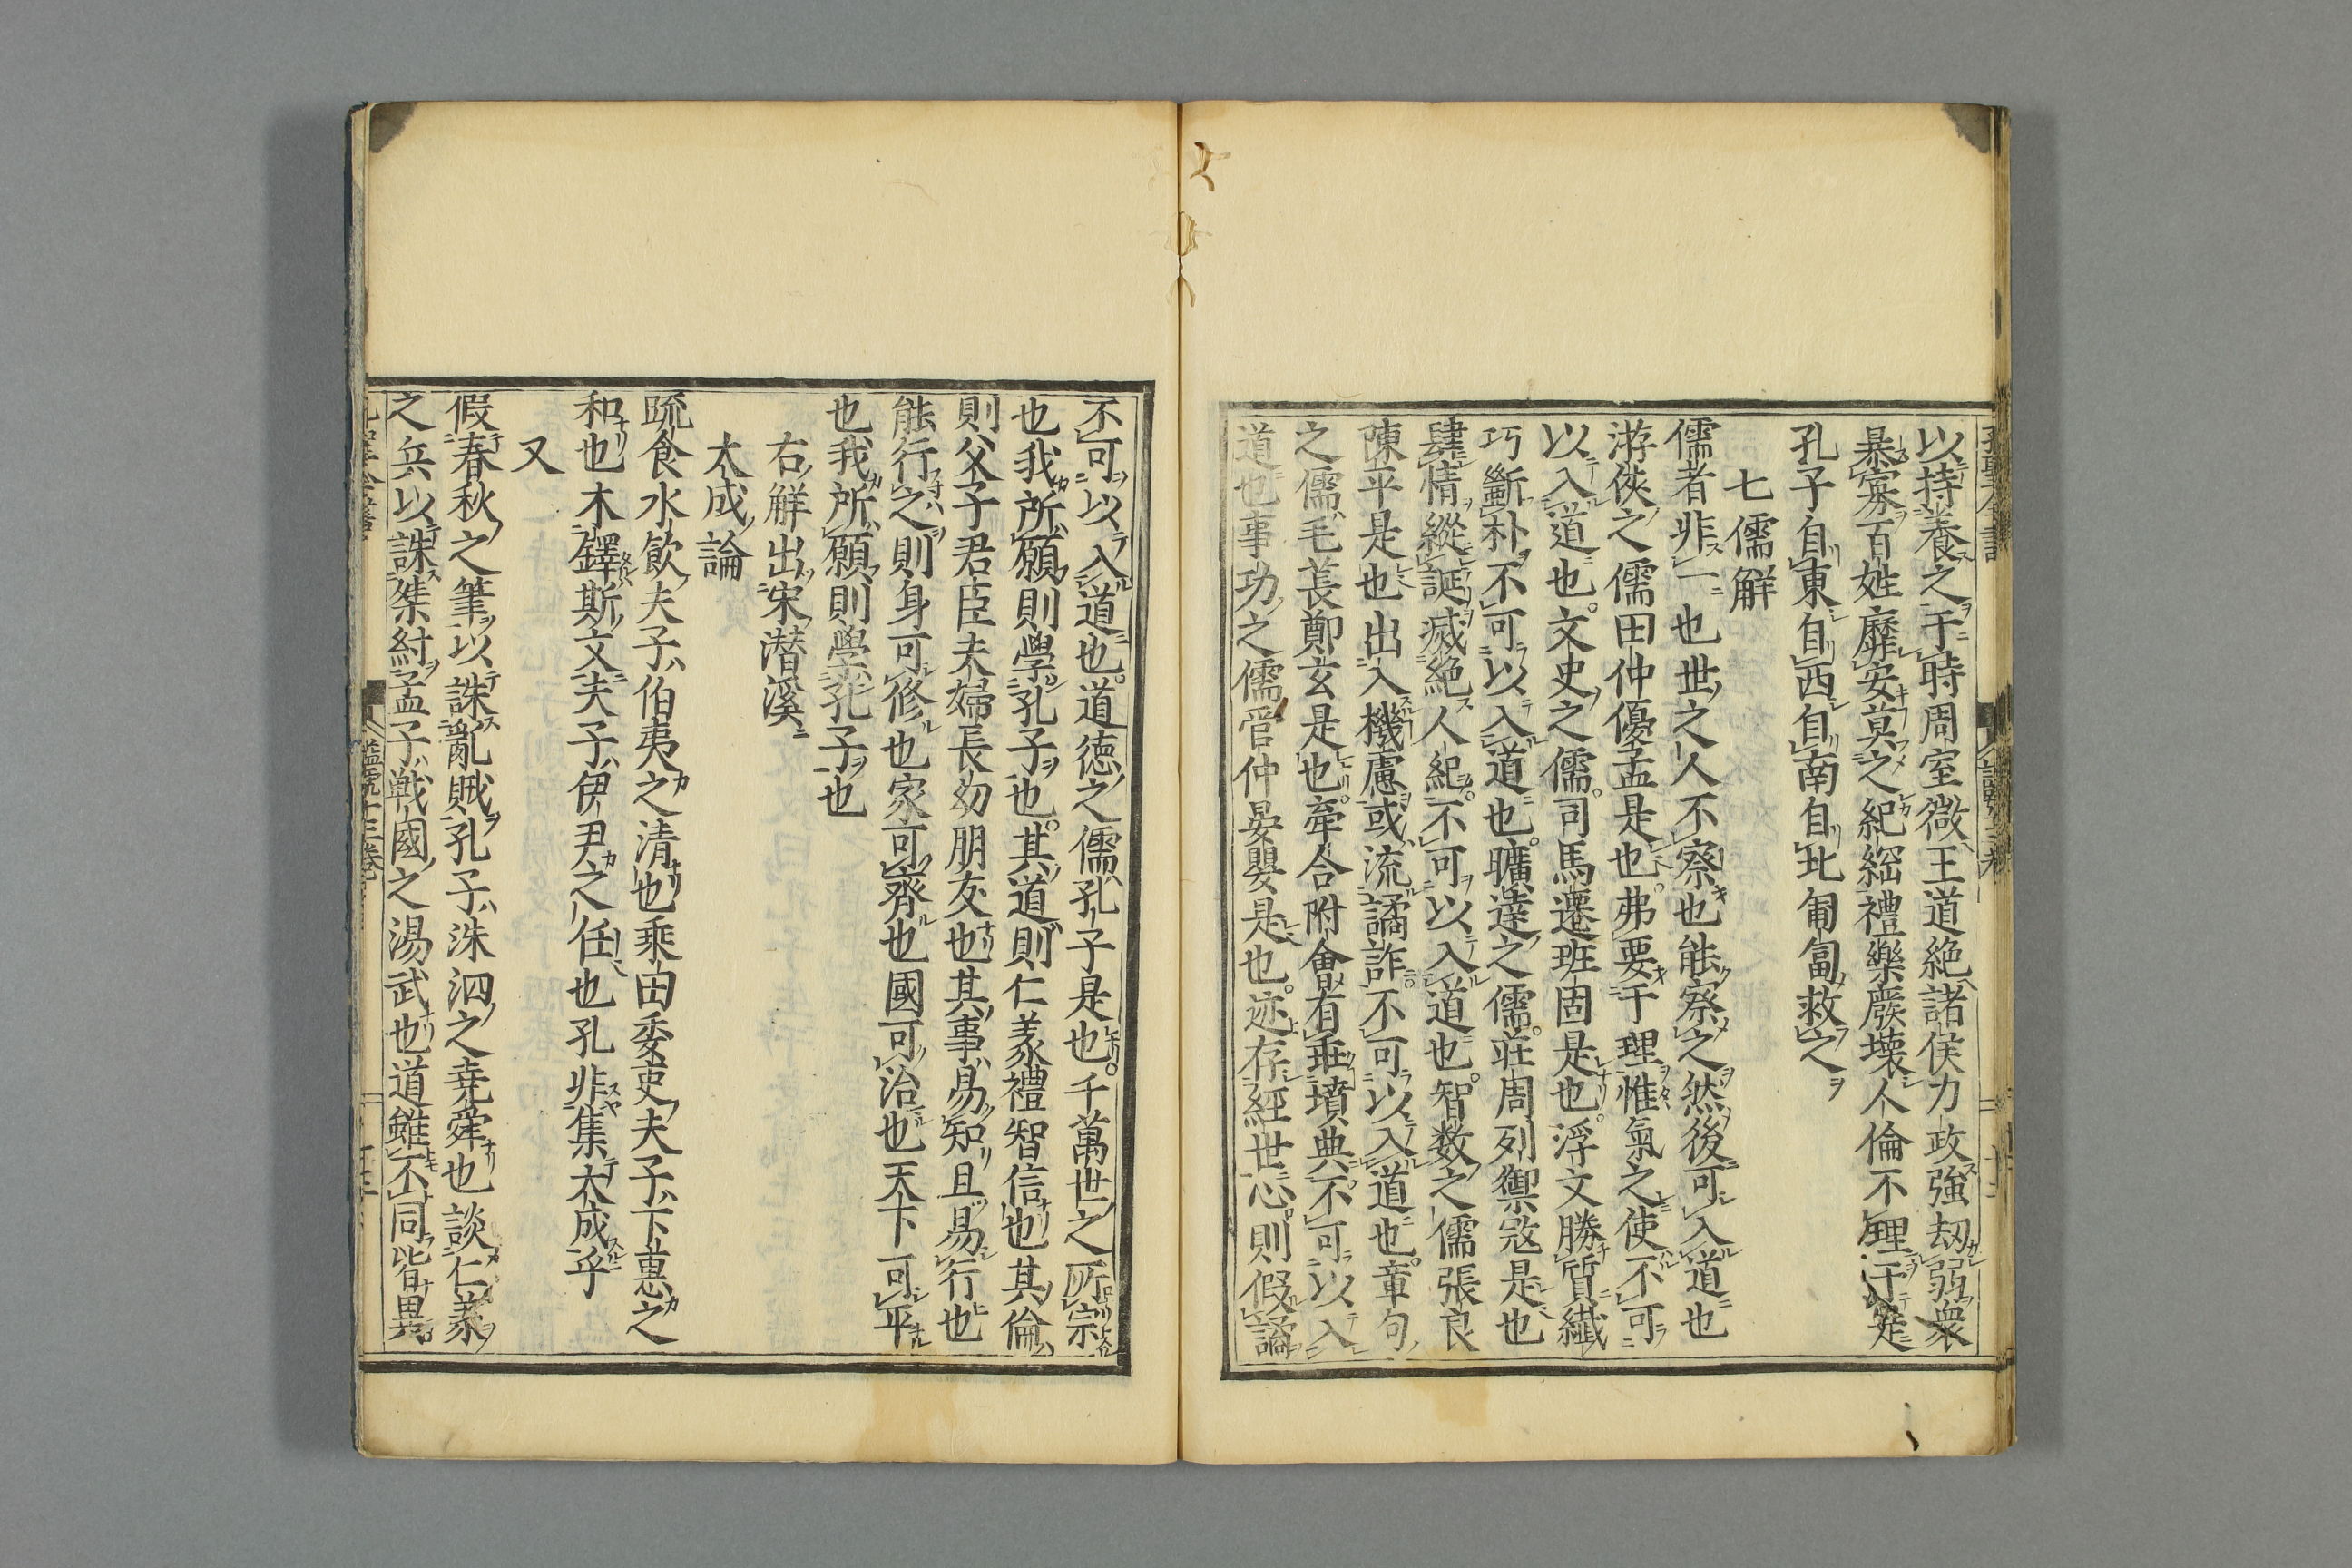 以持養之于時周室微王道絶諸侯力政強刼弱衆
暴寡百姓靡安莫之紀綱禮樂廢壞人倫不理于是
孔子自東自西自南自北匍匐救之
七儒解
儒者非一也世之人不察也能察之然後可入道也
游俠之儒田仲優孟是也弗要于理惟氣之使不可
以入道也文史之儒司馬遷班固是也浮文勝質纎
巧斵朴不可以入道也曠達之儒莊周列禦㓂是也
肆情縱誕滅絶人紀不可以入道也智数之儒張良
陳平是也出入機慮或流譎詐不可以入道也章句
之儒毛萇鄭玄是也牽合附會有乖墳典不可以入
道也事功之儒管仲晏嬰是也迹存經世心則假譎
不可以入道也道徳之儒孔子是也千萬世之所宗
也我所願則學孔子也其道則仁義禮智信也其倫
則父子君臣夫婦長幼朋友也其事易知且易行也
能行之則身可修也家可齊也國可治也天下可平
也我所願則學孔子也
右解出宋潜溪
大成論
疏食水飲夫子伯夷之清也乘田委吏夫子下惠之
和也木鐸斯文夫子伊尹之任也孔非集大成乎
又
假春秋之筆以誅亂賊孔子洙泗之堯舜也談仁義
之兵以誅桀紂孟子戦國之湯武也道雖不同皆異